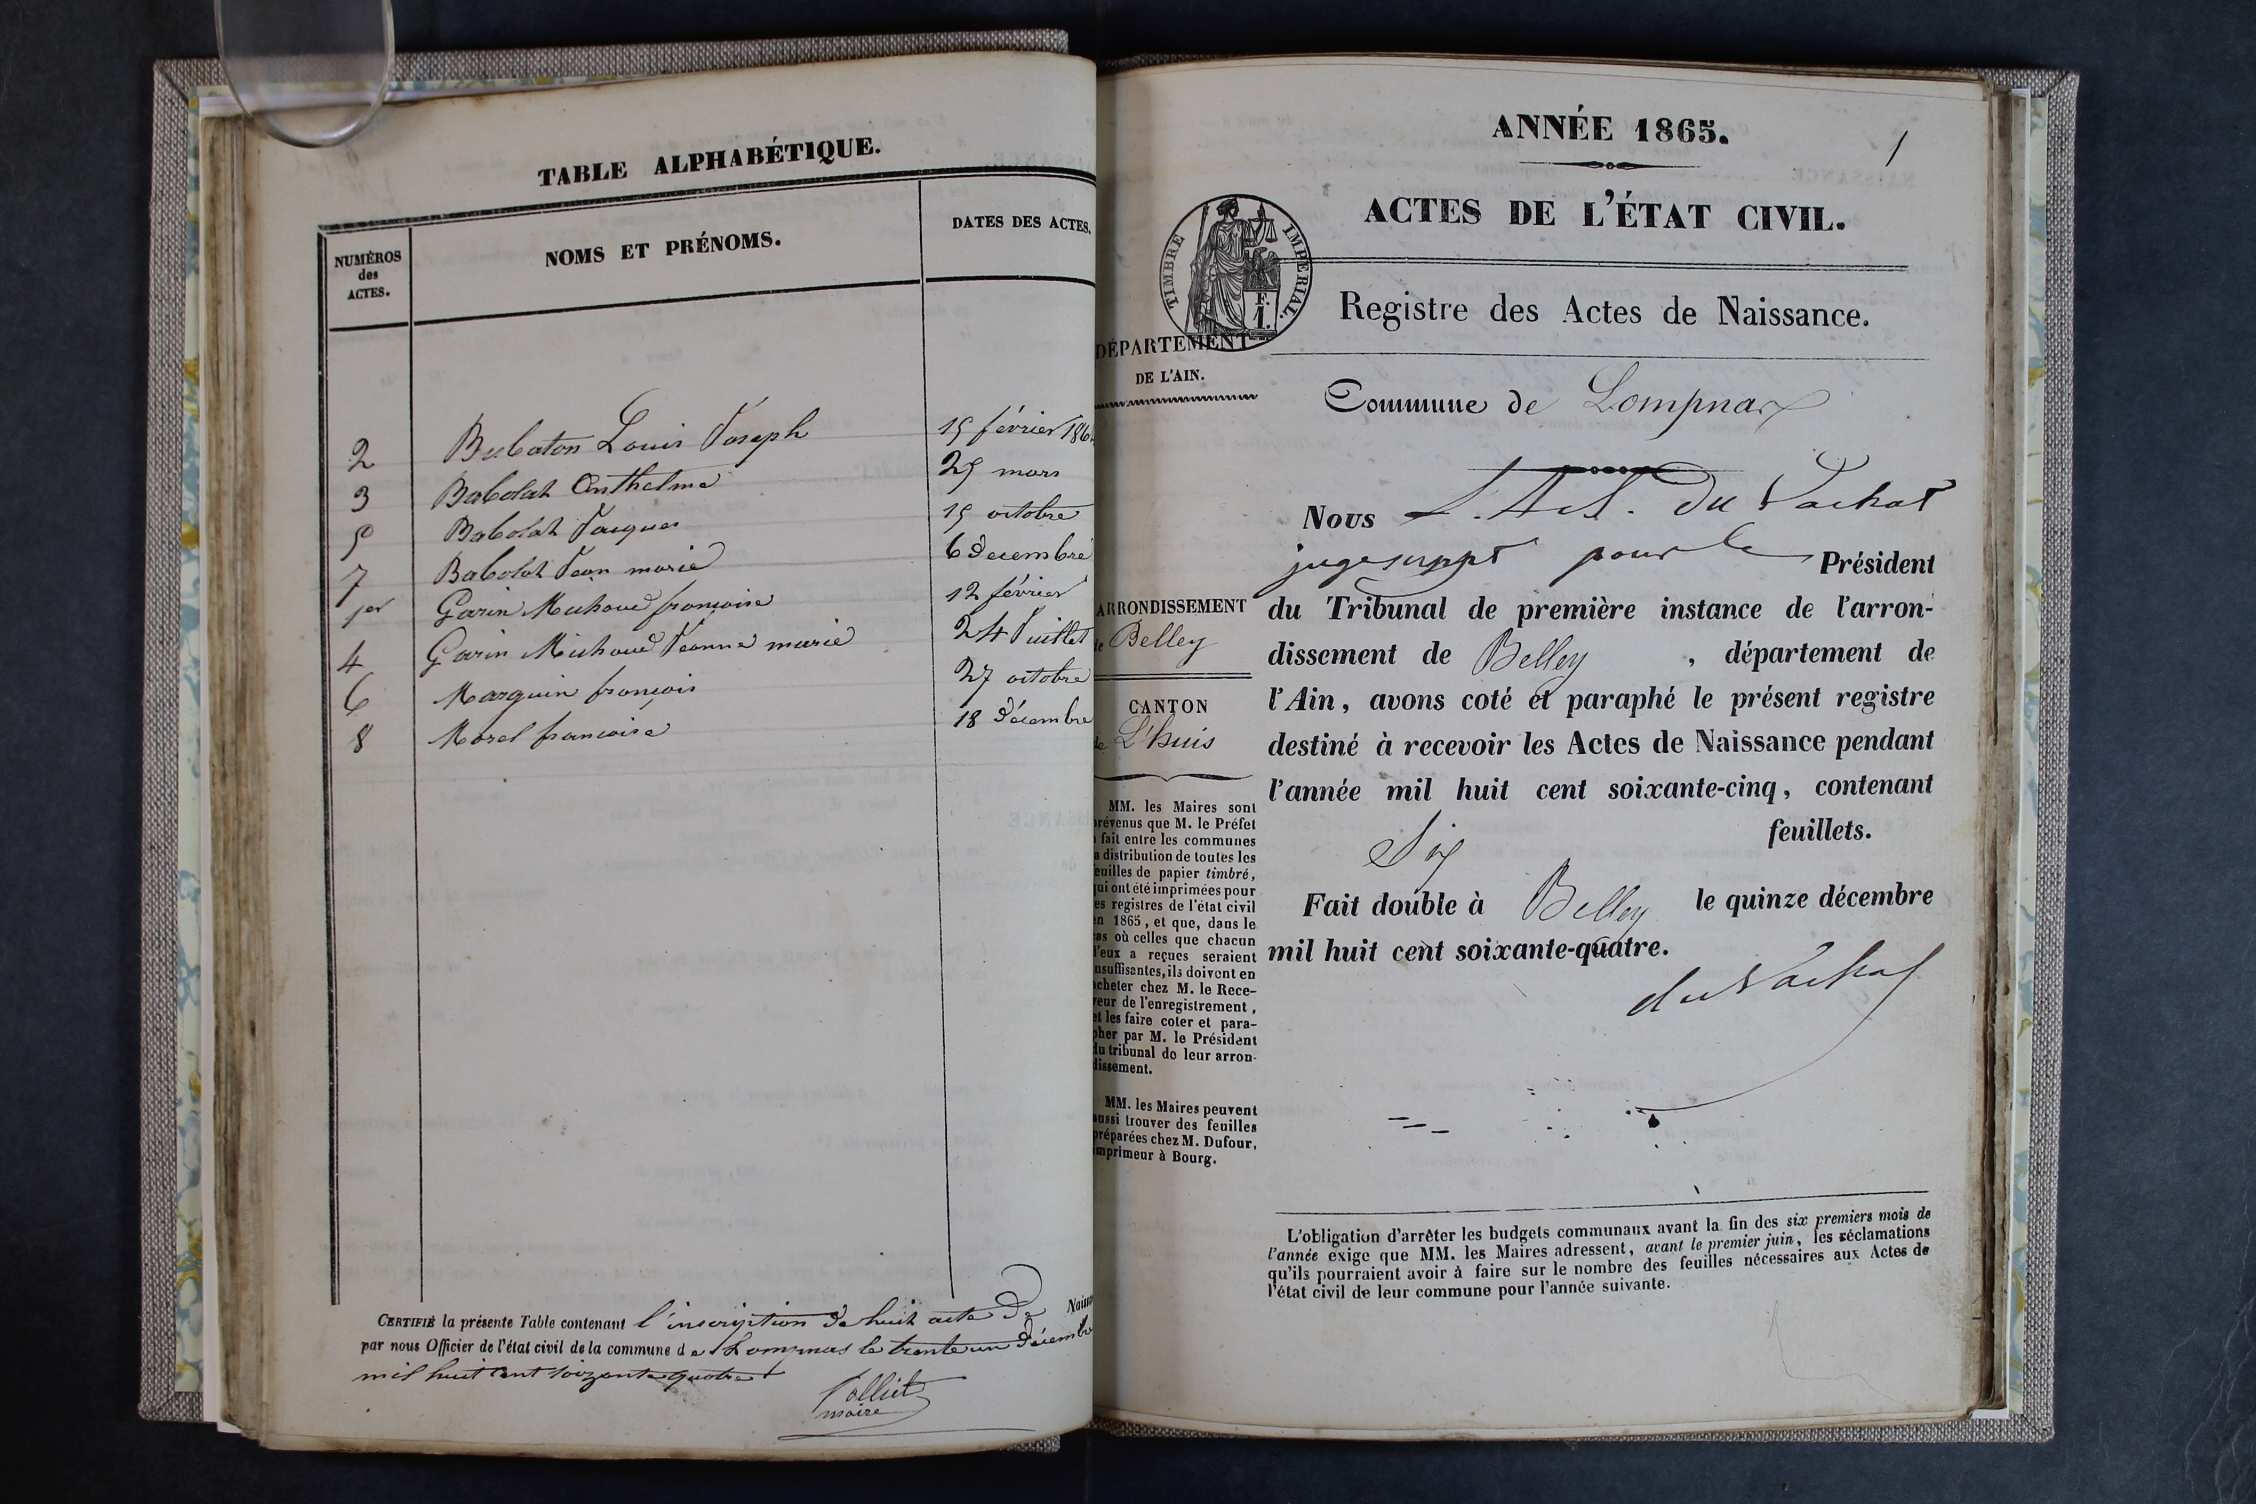 TABLE ALPHABÉTIQUE.
NUMÉROS des ACTES. NOMS ET PRÉNOMS. DATES DES ACTES.
2 Bubaton Louis Joseph 15 février 186
3 Babolat Anthelme 25 mars
5 Babolat Jacques 15 octobre
7 Babolat Jean marie 6 décembre
1er Garin Michoud françoise 12 février
4 Garin Michoud Jeanne marie 24 Juillet
6 Marquin françois 27 octobre
8 Morel françoise 18 décembre
CERTIFIÉ la présente Table contenant l'inscription de huit acte de Naiss
par nous Officier de l'état civil de la commune de Lompnas le trente un décembre
mil huit cent soixante quatre
Tolliet
maire
1
ANNÉE 1865.
ACTES DE L'ÉTAT CIVIL.
TIMBRE IMPÉRIAL.
F. 1.
Registre des Actes de Naissance.
DÉPARTEMENT
DE L'AIN.
Commune de Lompnas
ARRONDISSEMENT
de Belley
CANTON
de L'huis
MM. les Maires sont
prévenus que M. le Préfet
a fait entre les communes
la distribution de toutes les
feuilles de papier timbré,
qui ont été imprimées pour
les registres de l'état civil
en 1865, et que, dans le
cas où celles que chacun
d'eux a reçues seraient
insuffisantes, ils doivent en
acheter chez M. le Rece-
veur de l'enregistrement,
et les faire coter et para-
pher par M. le Président
du tribunal de leur arron-
dissement.
MM. les Maires peuvent
aussi trouver des feuilles
préparées chez M. Dufour,
imprimeur à Bourg.
Nous du Vachat
juge suppt pour le Président
du Tribunal de première instance de l'arron-
dissement de Belley, département de
l'Ain, avons coté et paraphé le présent registre
destiné à recevoir les Actes de Naissance pendant
l'année mil huit cent soixante-cinq, contenant
Six feuillets.
Fait double à Belley le quinze décembre
mil huit cent soixante-quatre.
du Vachat
L'obligation d'arrêter les budgets communaux avant la fin des six premiers mois de
l'année exige que MM. les Maires adressent, avant le premier juin, les réclamations
qu'ils pourraient avoir à faire sur le nombre des feuilles nécessaires aux Actes de
l'état civil de leur commune pour l'année suivante.